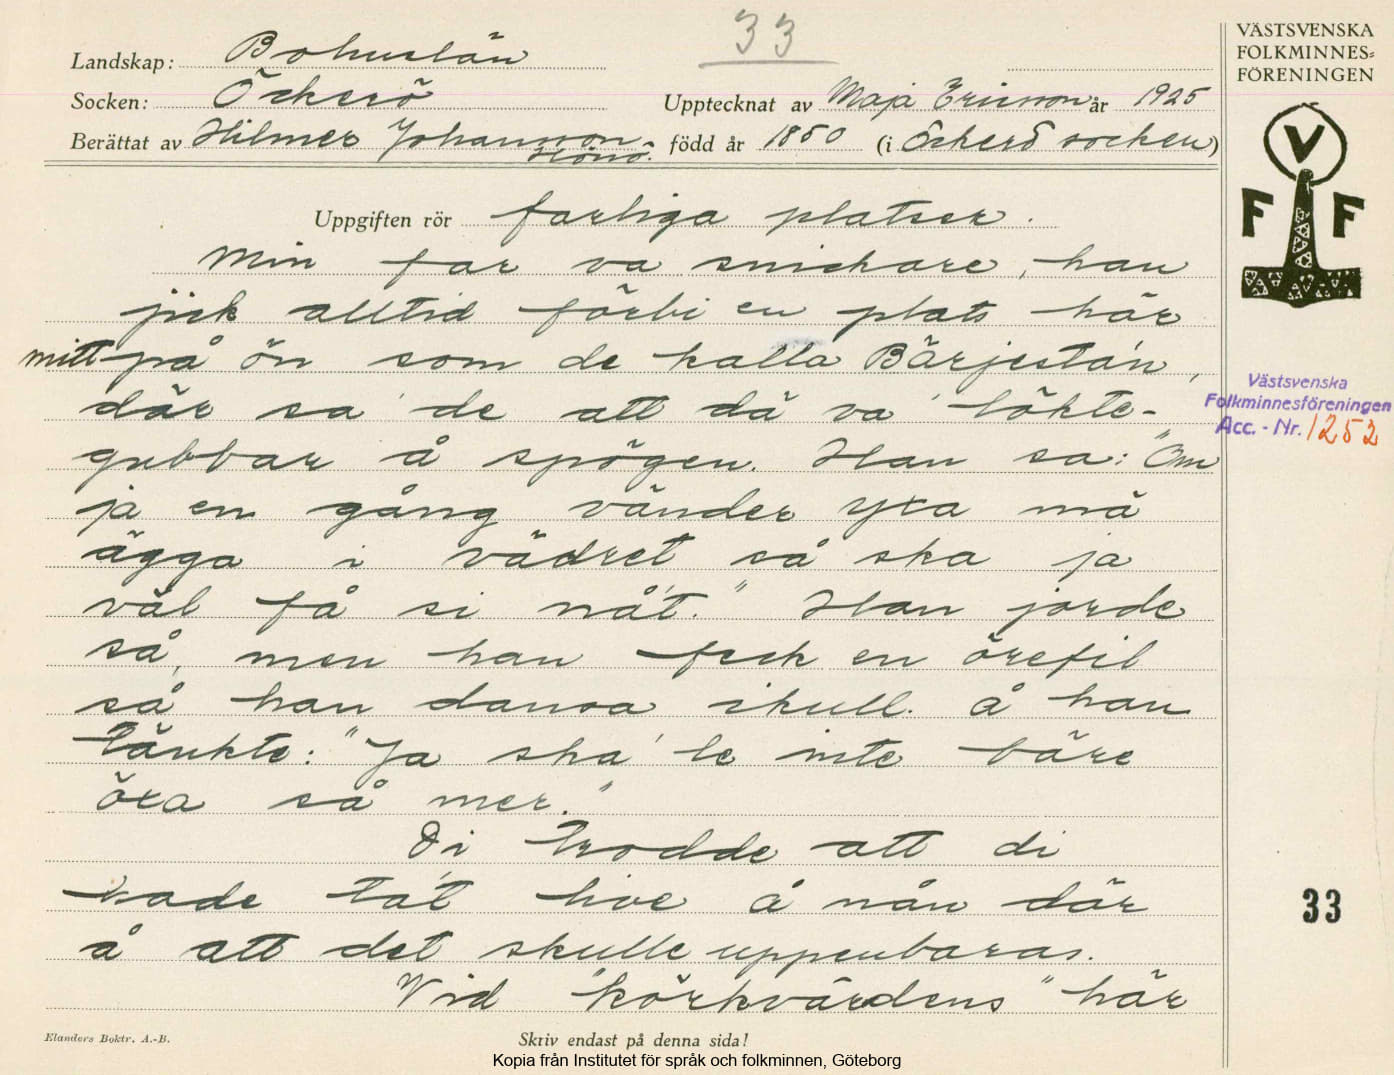 33
VÄSTSVENSKA
FOLKMINNES=
FÖRENINGEN
Landskap: Bohuslän
Socken: Öckerö
Upptecknat av Maja Ericson år 1925
Berättat av Hilmer Johansson
Hönö.
född år 1850 (i Öckerö socken)
V
F F
Uppgiften rör farliga platser.
Min far va snickare, han
jick alltid förbi en plats här
mitt på ön som de kalla Bärjestán,
där sa' de att dä va' löktе-
gubbar å spögen. Han sa: "Om
ja en gång vänder yxa mä
ägga i vädret så ska ja
väl få si nåt." Han jorde
så, men han feck en örefil
så han dansa ikull. å han
tänkte: "Ja ska' le inte bäre
öxa så mer."
Di trodde att di
hade tat live å nån där
å att det skulle uppenbaras.
Vid "körkvärdens" här
Västsvenska
Folkminnesföreningen
Acc. - Nr. 1252
33
Elanders Boktr. A.-B.
Skriv endast på denna sida!
Kopia från Institutet för språk och folkminnen, Göteborg